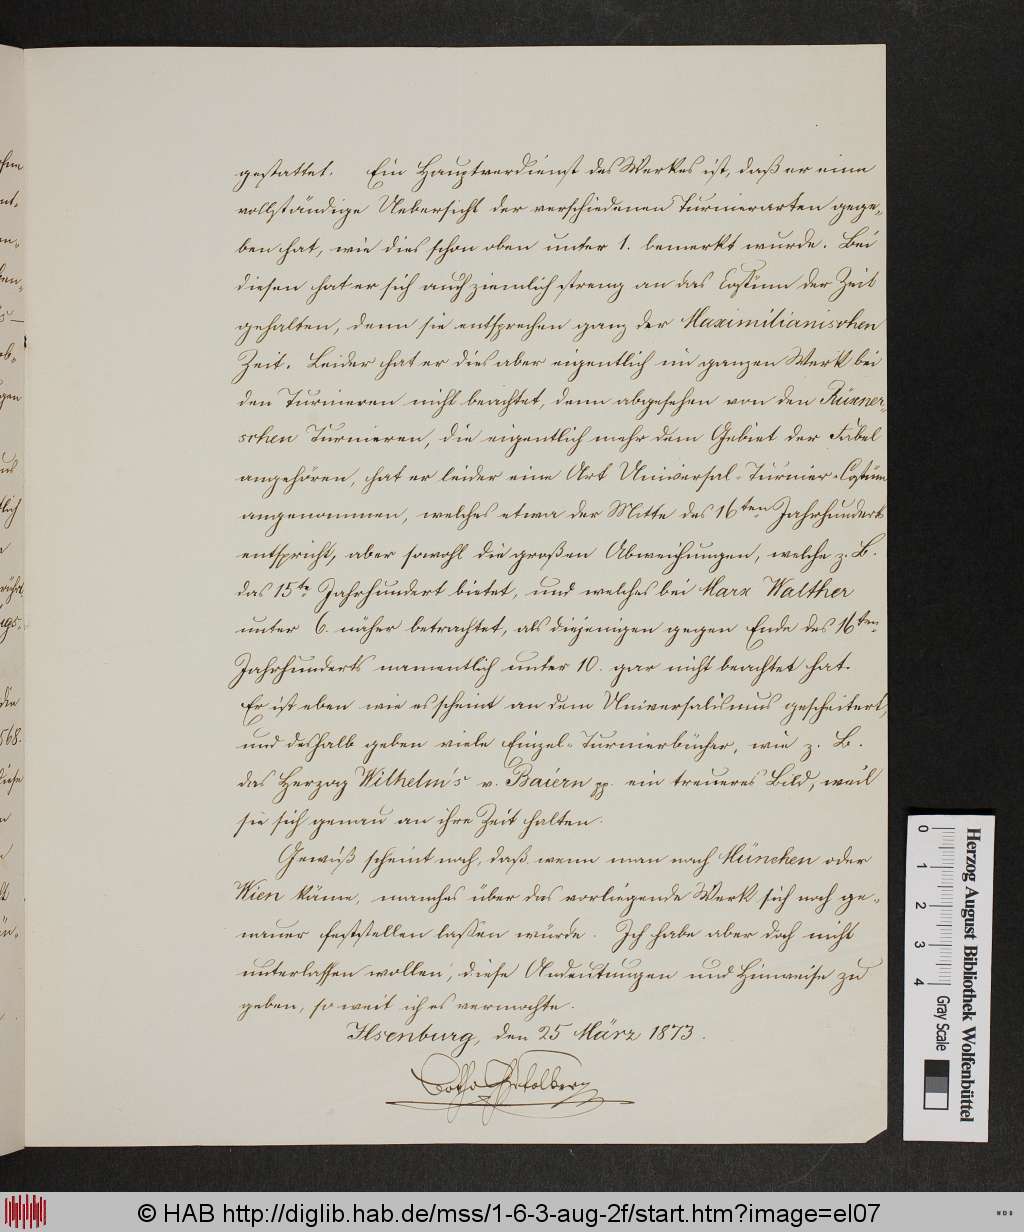 gestattet. Ein Hauptverdienst des Werkes ist, daß er eine
vollständige Uebersicht der verschiedenen Turnierarten gege-
ben hat, wie dies schon oben unter 1. bemerkt wurde. Bei
diesen hat er sich auch ziemlich streng an das Costüm der Zeit
gehalten, denn sie entsprechen ganz der Maximilianischen
Zeit. Leider hat er dies aber eigentlich im ganzen Werk bei
den Turnieren nicht beachtet, denn abgesehen von den Rüxner-
schen Turnieren, die eigentlich mehr dem Gebiet der Fabel
angehören, hat er leider eine Art Universal-Turnier-Costüm
angenommen, welches etwa der Mitte des 16ten Jahrhunderts
entspricht, aber sowohl die großen Abweichungen, welche z. B.
das 15te Jahrhundert bietet, und welches bei Marx Walther
unter 6. näher betrachtet, als diejenigen gegen Ende des 16ten
Jahrhunderts namentlich unter 10. gar nicht beachtet hat.
Er ist eben wie es scheint an dem Universalismus gescheitert,
und deshalb geben viele Einzel-Turnierbücher, wie z. B.
das Herzog Wilhelm's v. Baiern pp. ein treueres Bild, weil
sie sich genau an ihre Zeit halten.
Gewiß scheint noch, daß wenn man nach München oder
Wien käme, manches über das vorliegende Werk sich noch ge-
nauer feststellen lassen würde. Ich habe aber doch nicht
unterlassen wollen, diese Andeutungen und Hinweise zu
geben, so weit ich es vermochte.
Ilsenburg, den 25 März 1873.
Botho Gr Stolberg
Herzog August Bibliothek Wolfenbüttel
Gray Scale
0 1 2 3 4
© HAB http://diglib.hab.de/mss/1-6-3-aug-2f/start.htm?image=el07